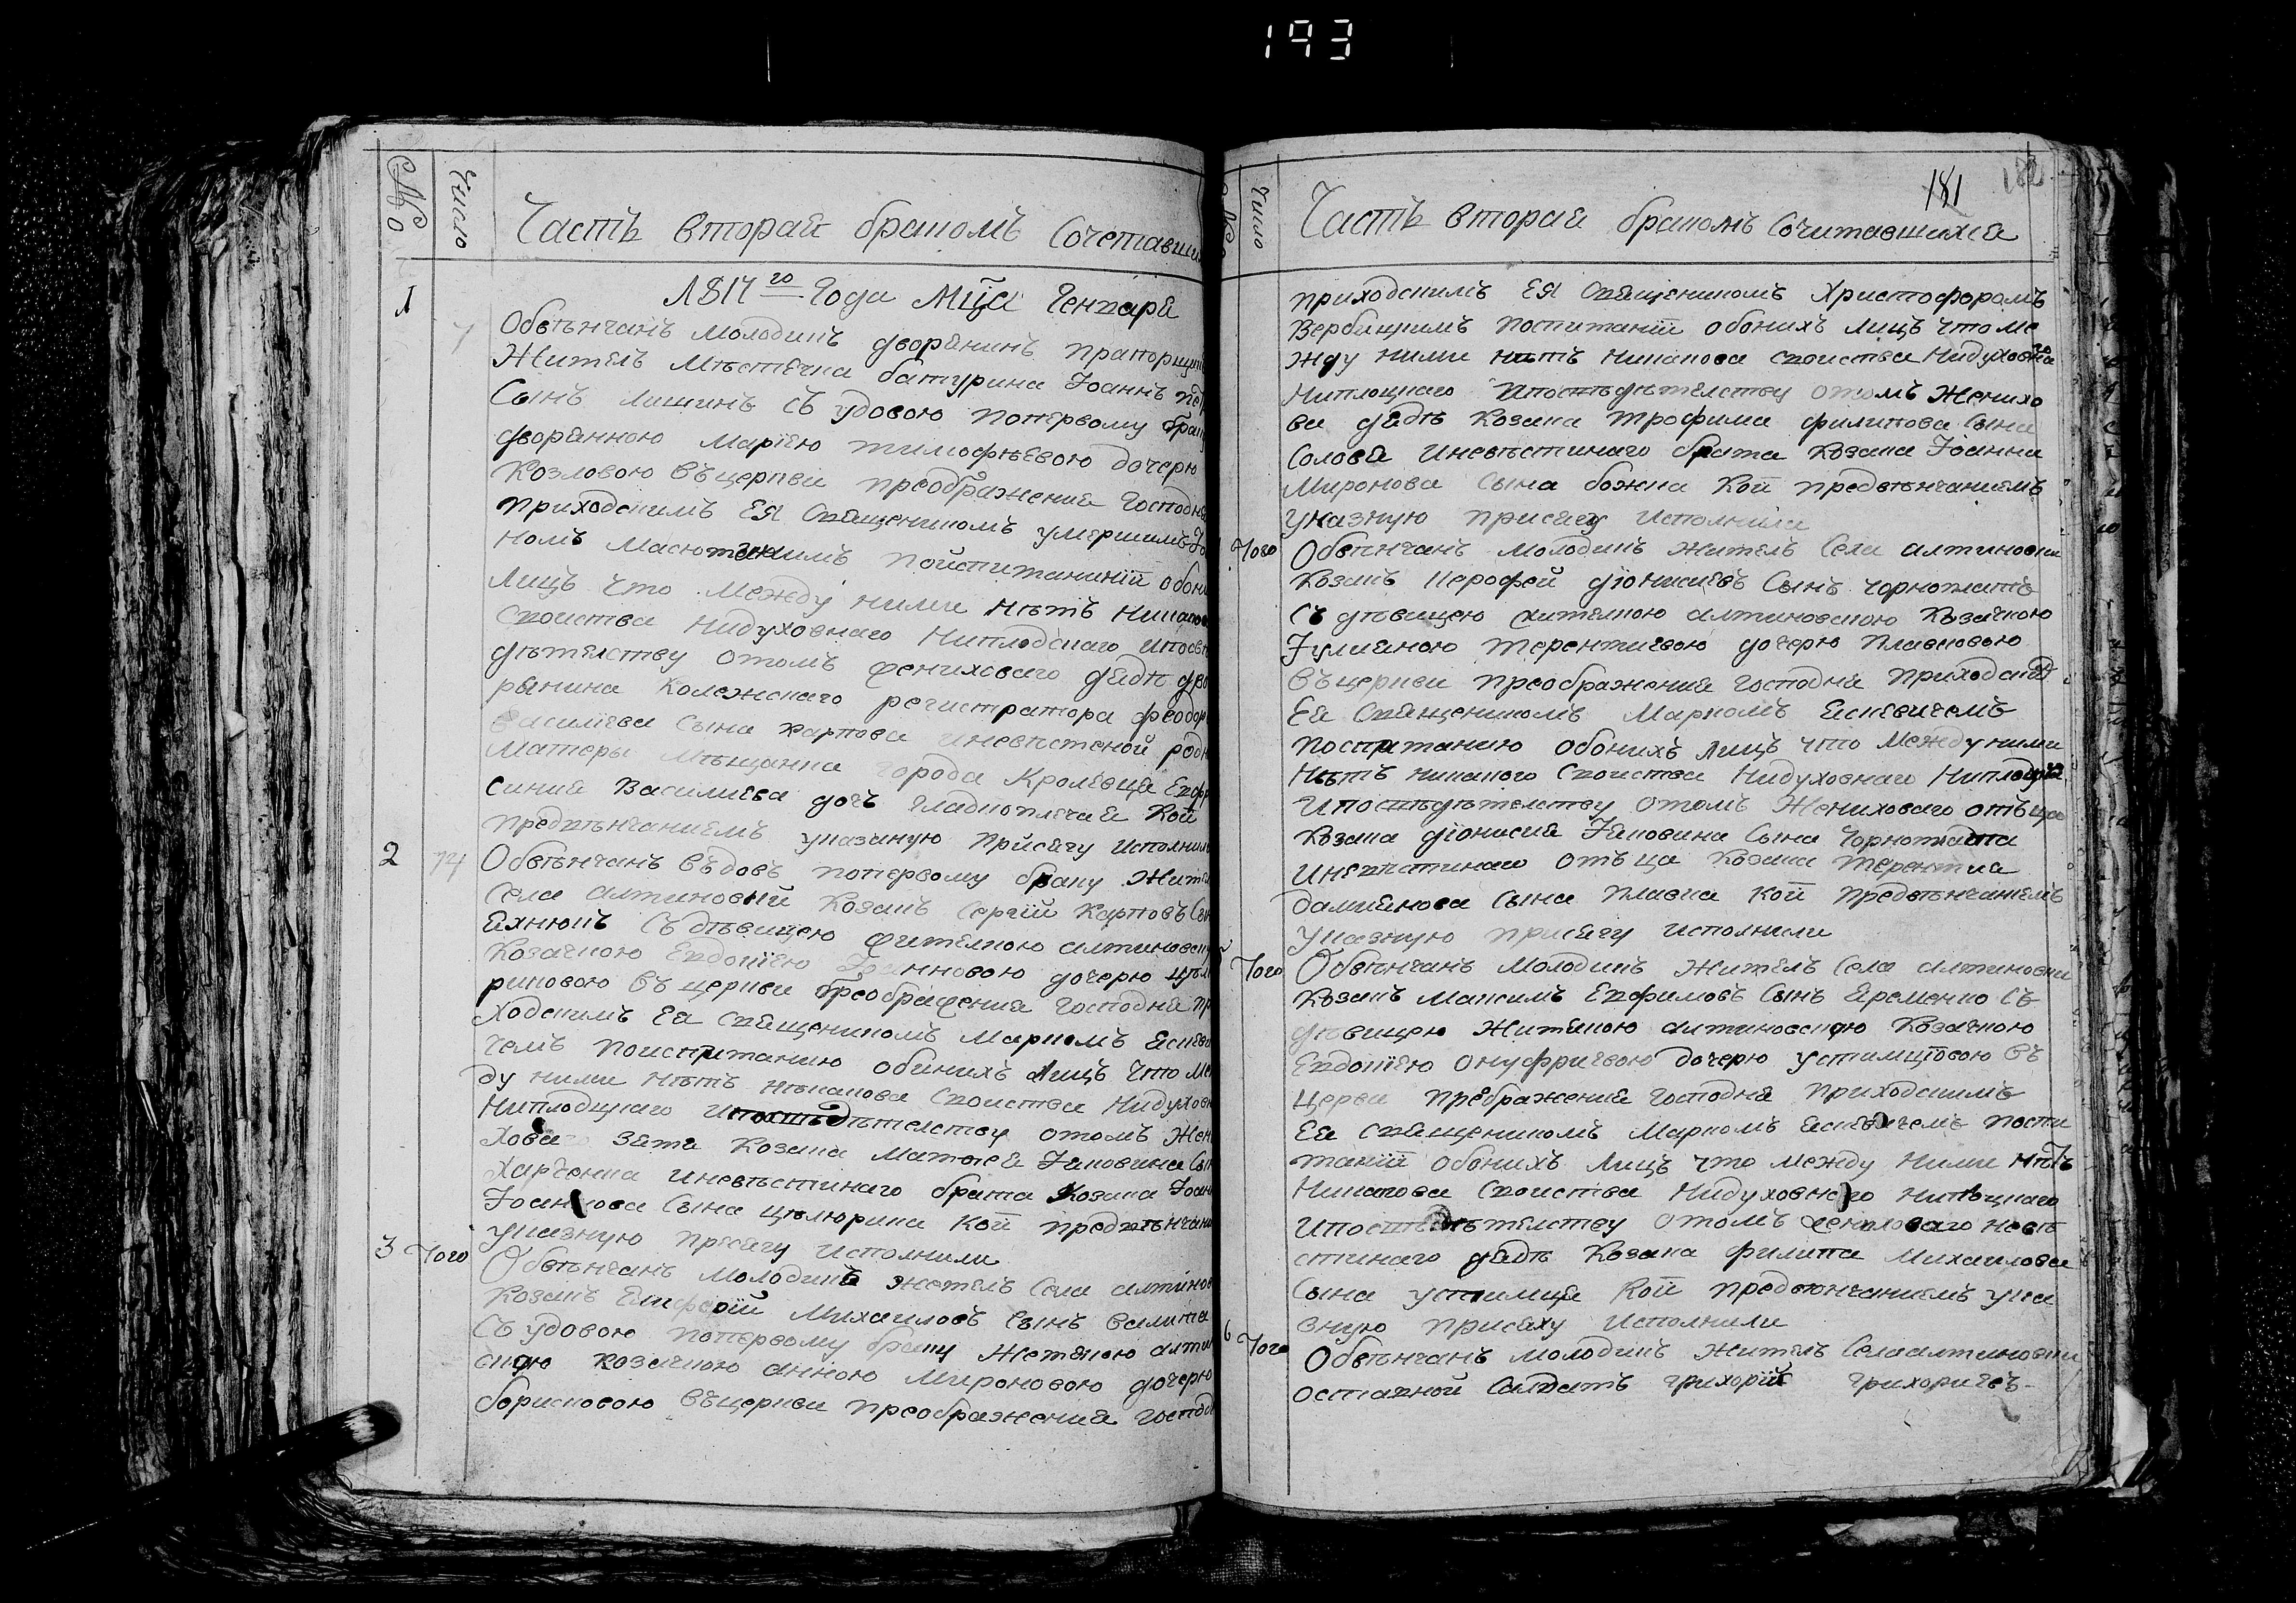 193
№
Число
Часть вторая бракомъ Сочетавши
1817го Года Мца Генваря
1
7
Обвѣнчанъ молодикъ дворянинъ прапорщикъ
Житель Мѣстечка батурина Іоаннъ
Сынъ Лишинъ съ удовою попервому браку
дворянкою Маріею тимофѣевою дочерю
Козловою въцеркви преображения Господня
приходскимъ Ея Священикомъ умершимъ
номъ поиспитаниїй обоих
Лицъ что между ними нѣтъ никаков
своиства нидуховнаго ниплодскаго ипосвѣ
дѣтелству отомъ жениховаго дядѣ дво
рянина Колежскаго регистратора феодор
Василїева Сына карпова иневѣстеной родн
Матеры Мѣщанки города Кролевця Евфро
синия Василиева дочь гладкоплечая Кой
предвѣнчаниемъ указную присягу исполнили
2
14
Обвѣнчанъ вѣдовъ попервому браку жител
Села алтиновкй Козакъ Сергїй Карповъ Сын
Яхнюкъ Съ дѣвицею жителкою алтиновску
Козачкою Евдокїею Іоанновою дочерю цѣлю
риковою въ церкви преображения Господня при
ходскимъ Ея священикомъ Маркомъ Яскеви
чемъ поиспитанию обиихъ Лицъ что меж
ду ними нѣтъ нѣкакова своиства нидуховн
ниплодцкаго ипосвѣдѣтелству отомъ жени
ховаго зятя Козака Матвея Іаковина Сын
Харченка иневѣстинаго брата Козака Іоанн
Іоаннова Сына цѣлюрика кой предвѣнчани
указную присягу исполнили
3
Того
Обвѣнчанъ молодикъ жетель Села алтинов
Козакъ Михаиловъ Сынъ
Съ удовою попервому браку жетелкою алтин
скою козачкою анною Мироновою дочерю
борисковою въцеркви преображения господ
181
182
№
Число
Часть вторая бракомъ Сочитавшихся
приходскимъ Ея Священикомъ Христофоромъ
Вербицкимъ поспитаниї обоихъ лицъ что ме
жду ними нѣтъ никакова своиства нидуховнаго
ниплоцкаго ипосвѣдѣтелству отомъ женихо
ва дядѣ Козака трофима филипова Сына
Соловя иневѣстинаго брата Козака Іоанна
Миронова Сына божка Кой предвѣнчаниемъ
указную присягу исполнили
Того
Обвѣнчанъ молодикъ житель Села алтиновки
Козакъ Іерофей діонисиевъ Сынъ
Съ дѣвицею жителкою алтиновскою Козачкою
Іулияною терентиевою дочерю плавковою
въцеркви преображения господня приходским
Ея Священикомъ Маркомъ Яскевичемъ
поспитанию обоихъ лицъ что между ними
Нѣтъ никакого своиства нидуховнаго
ипосвѣдѣтелству отомъ жениховаго отъца
Козака діонисия Іаковина Сына
иневѣстинаго отъца Козака терентия
дамиянова Сына плавка кой предвѣнчаниемъ
указную присягу исполнили
5
Того
Обвѣнчанъ молодикъ житель Села алтиновки
Козакъ Максимъ Евфимовъ Сынъ Яременко съ
дѣвицею жителкою алтиновскою козачкою
Евдокїею онуфриевою дочерю устимцювою въ
церви пребражения господня приходскимъ
Ея священикомъ Маркомъ Яскевичемъ поспи
таниї обоихъ лицъ что между ними нѣтъ
никакова своиства нидуховнаго ниплоцкаго
ипосвѣдѣтелству отомъ жениховаго невѣ
стинаго дядѣ Козака филипа Михаилова
Сына устимця кой предвѣнчаниемъ ука
зную присяху исполнили
6
Того
Обвѣнчанъ молодикъ житель Села алтиновки
оставной Салдатъ грихорїй грихориевъ